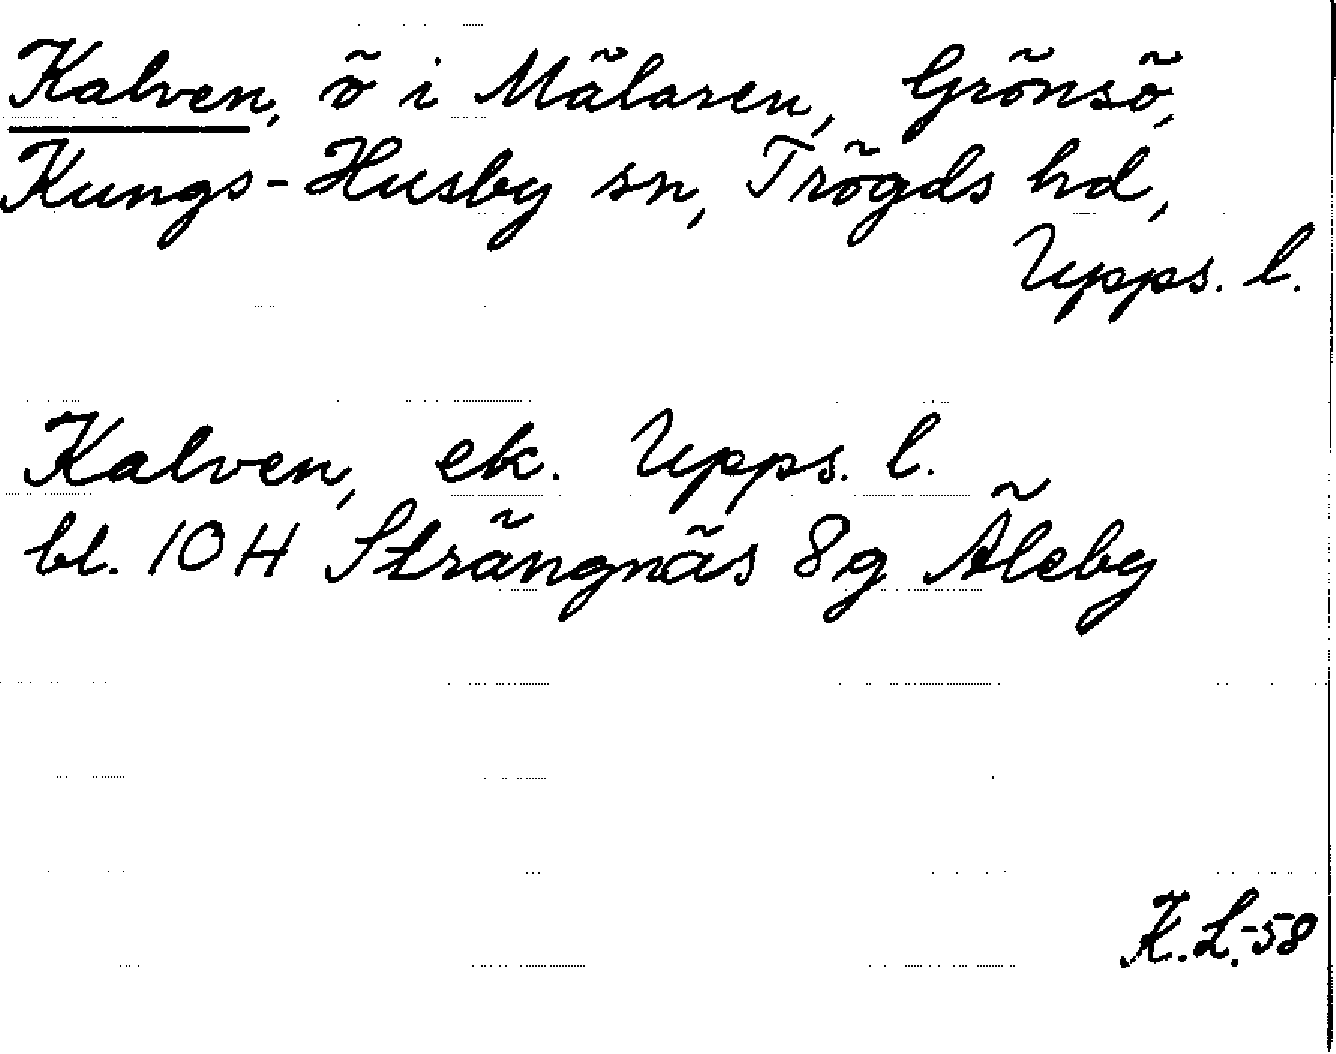 Kalven, ö i Mälaren, Grönsö,
Kungs-Husby sn, Trögds hd,
Upps. l.
Kalven, ek. Upps. l.
bl. 10H Strängnäs 8g Äleby
K.L.-58